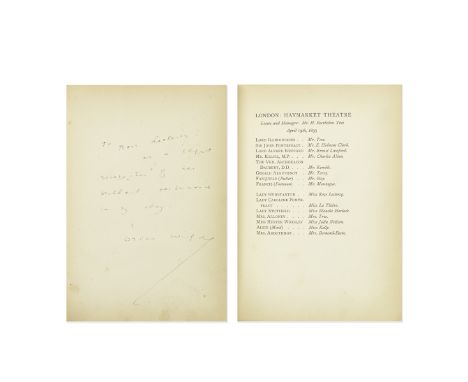 To Rose Leclercq :
as a slight
recognition of her
brilliant performance
in my play
Oscar Wilde
LONDON: HAYMARKET THEATRE
Lessee and Manager: Mr. H. Beerbohm Tree
April 19th, 1893
LORD ILLINGWORTH . . Mr. Tree.
SIR JOHN PONTEFRACT . . Mr. E. Holman Clark.
LORD ALFRED RUFFORD . . Mr. Ernest Lawford.
MR. KELVIL, M.P. . . Mr. Charles Allan.
THE VEN. ARCHDEACON
DAUBENY, D.D. . . Mr. Kemble.
GERALD ARBUTHNOT . . Mr. Terry.
FARQUHAR (Butler) . . Mr. Hay.
FRANCIS (Footman) . . Mr. Montague.
LADY HUNSTANTON . . Miss Rose Leclercq.
LADY CAROLINE PONTE-
FRACT . . Miss Le Thière.
LADY STUTFIELD . . Miss Blanche Horlock.
MRS. ALLONBY . . Mrs. Tree.
MISS HESTER WORSLEY . . Miss Julia Neilson.
ALICE (Maid) . . Miss Kelly.
MRS. ARBUTHNOT . . Mrs. Bernard-Beere.